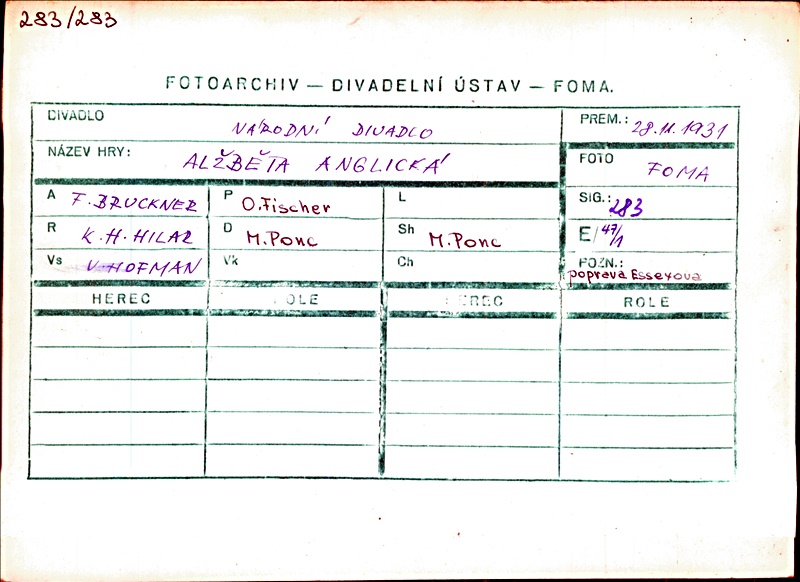 283/283
FOTOARCHIV — DIVADELNÍ ÚSTAV — FOMA.
DIVADLO NÁRODNÍ DIVADLO PREM.: 28.11.1931
NÁZEV HRY: ALŽBĚTA ANGLICKÁ FOTO FOMA
A F. BRUCKNER P O. Fischer L SIG.: 283
R K. H. HILAR D M. Ponc Sh M. Ponc E/47/1
Vs V. HOFMAN Vk Ch POZN.: poprava Essexova
HEREC ROLE HEREC ROLE